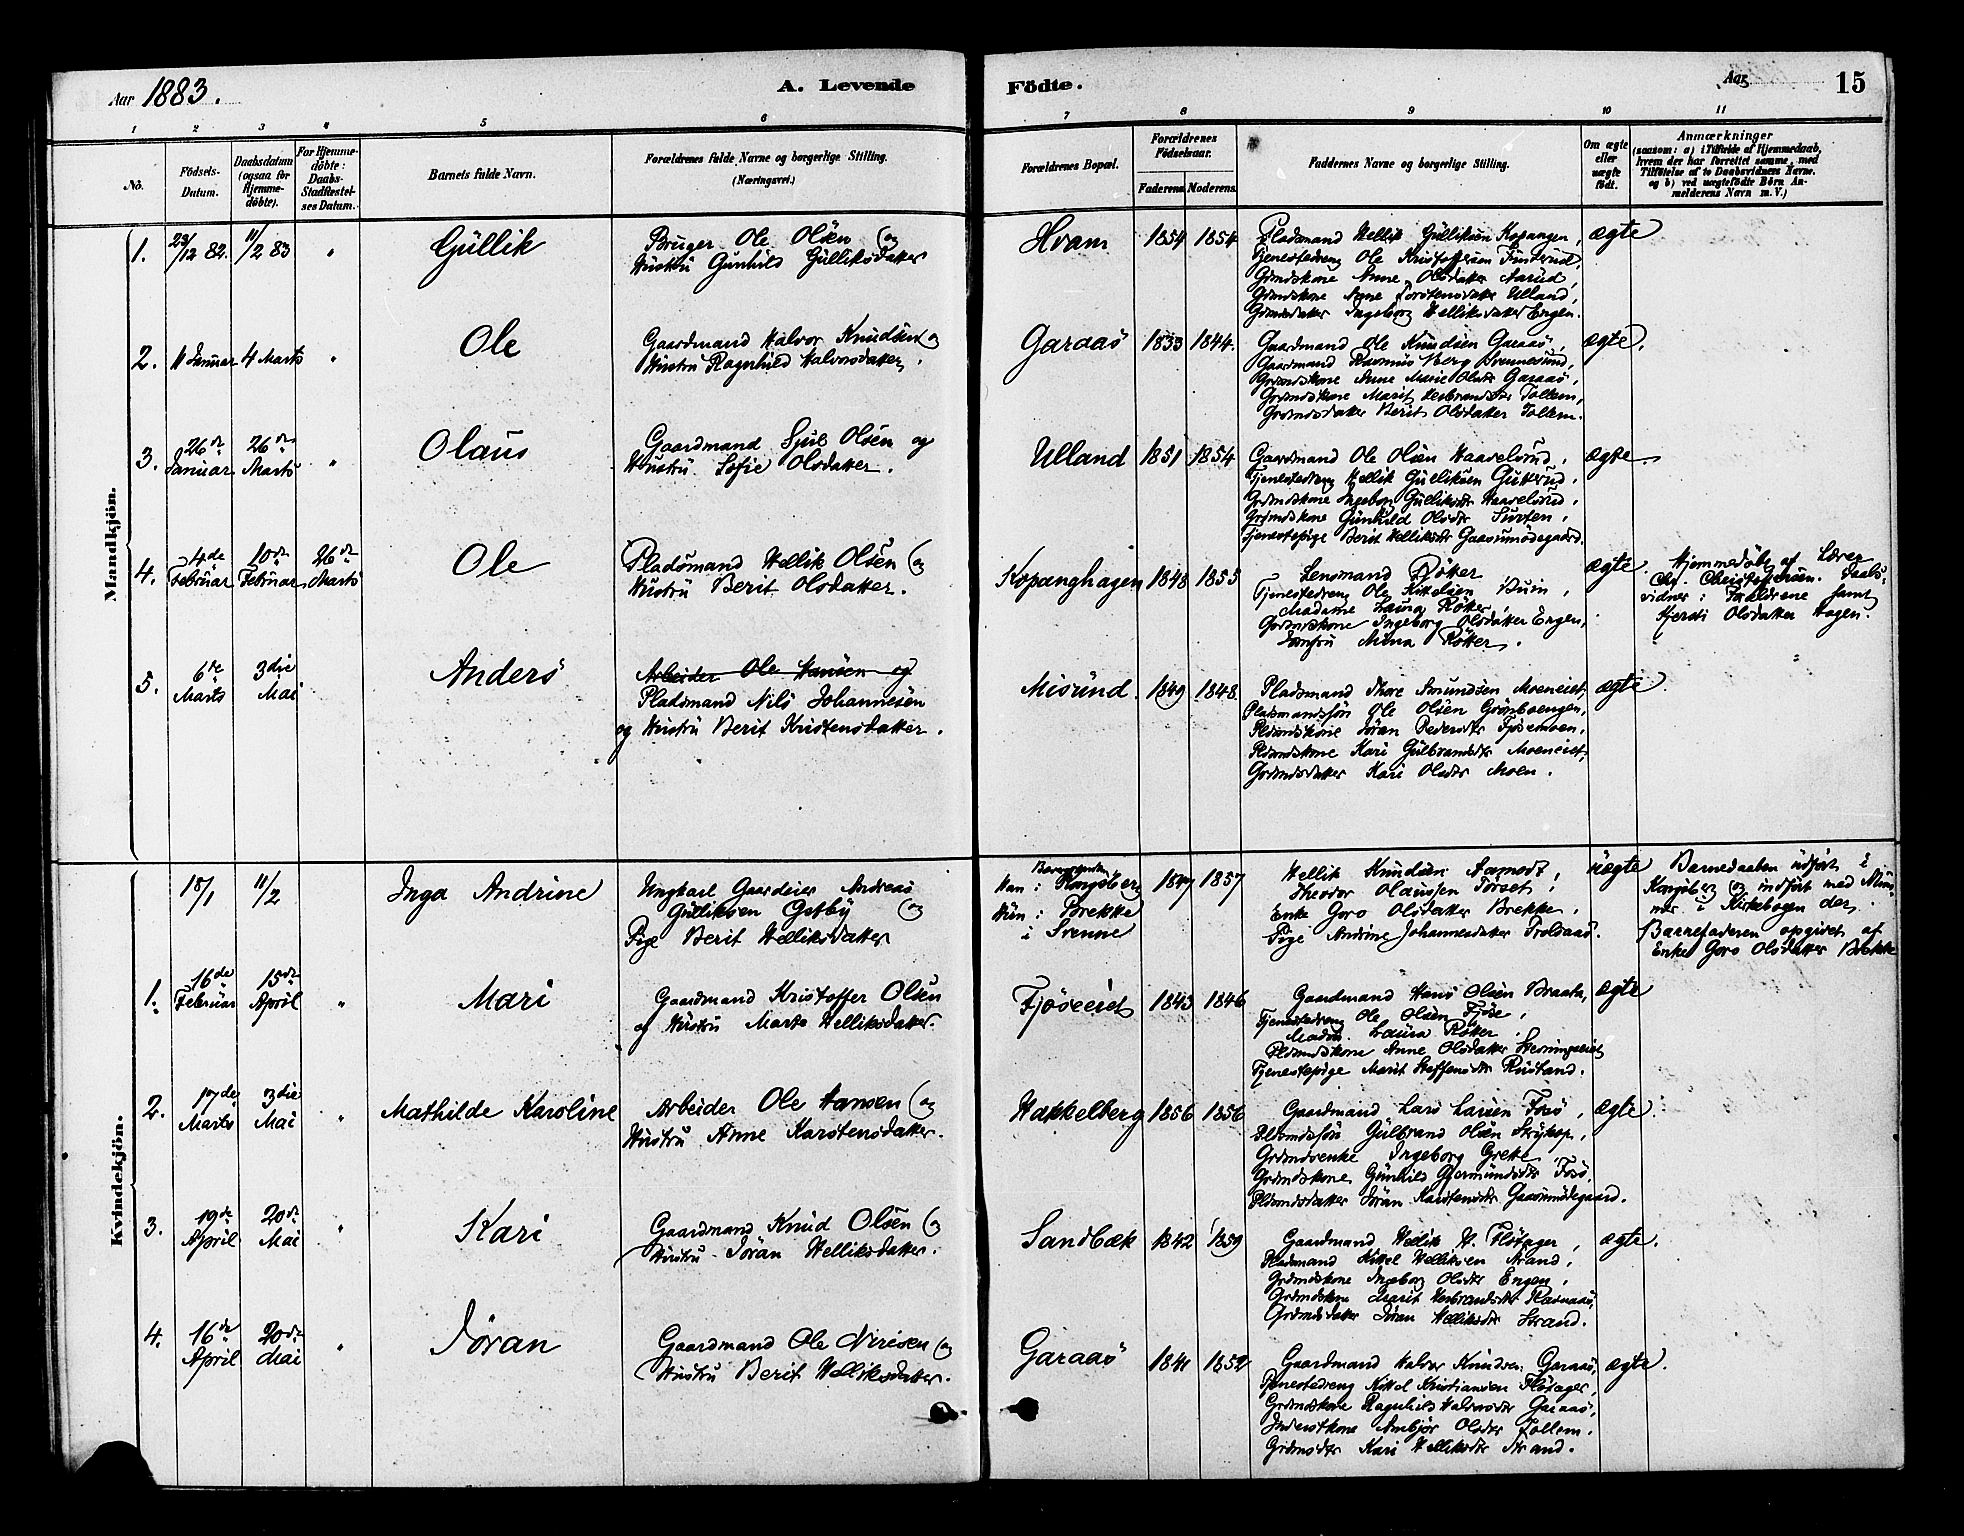 Aar 1883.
A. Levende
Födte.
Aar
15
1 2 3 4 5 6 7 8 9 10 11
No.
Födsels-
Datum.
Daabsdatum
(ogsaa for
Hjemme-
döbte).
For Hjemme-
döbte:
Daabs-
Stadfæstel-
ses Datum.
Barnets fulde Navn.
Forældrenes fulde Navne og borgerlige Stilling.
(Næringsvei.)
Forældrenes Bopæl.
Forældrenes
Födselsaar.
Faderens. Moderens.
Faddernes Navne og borgerlige Stilling.
Om ægte
eller
uægte
födt.
Anmærkninger
(saasom: a) i Tilfælde af Hjemmedaab,
hvem der har forrettet samme, med
Tilföielse af to Daabsvidners Navne.
og b) ved uægtefödte Börn An-
melderens Navn m. V.)
Mandkjön.
1.
23/12 82.
11/2 83
"
Gullik
Bruger Ole Olsen og
Hustru Gunhild Gulliksdatter
Hvam
1854 1854
Pladsmand Hellik Gulliksen Kopangen,
Tjenestedreng Ole Kristoffersen Finterud,
Grdmdskone Anne Olsdatter Aarud,
Grdmdskone Anne Torstensdatter Ulland,
Grdmdsdatter Ingeborg Helliksdatter Engen.
ægte
2.
11 Januar
4 Marts
"
Ole
Gaardmand Halvor Knudsen og
Hustru Ragnhild Halvorsdatter.
Garaas
1833 1844.
Gaardmand Ole Knudsen Garaas,
Gaardmand Rasmus Berg Svennesund,
Grdmdskone Anne Marie Olsdtr Garaas,
Grdmdskone Marit Herbrandsdtr Tollem,
Grdmdsdatter Berit Olsdatter Tollem.
ægte.
3.
26de
Januar
26de
Marts
"
Olaus
Gaardmand Sjul Olsen og
Hustru Sofie Olsdatter.
Ulland
1851 1854
Gaardmand Ole Olsen Haavelsrud,
Tjenestedreng Hellik Gulliksen Gutterud,
Grdmdskone Ingeborg Gulliksdtr Haavelsrud,
Grdmdskone Gunhild Olsdtr Surten,
Tjenestepige Berit Helliksdtr Gaasmødegaard.
ægte.
4.
4de
Februar
10de
Februar
26de
Marts
Ole
Pladsmand Hellik Olsen og
Hustru Berit Olsdatter.
Kopanghagen
1848 1855
Lensmand Røtter
Tjenestedreng Ole Kittelsen Buin,
Madame Laura Røtter,
Grdmdskone Ingeborg Olsdatter Engen,
Jomfru Mina Røtter.
ægte.
Hjemmedöbt af Lærer
Chr. Christophersen. Daabs-
vidner: Forældrene samt
Hjerdi Olsdatter Hagen.
5.
6te
Marts
3die
Mai
Anders
Arbeider Ole Hansen og
Pladsmand Nils Johannesen
og Hustru Berit Kristensdatter.
Misund.
1849 1848.
Pladsmand Thore Amundsen Moeneiet,
Pladsmandssøn Ole Olsen Grønboengen,
Pldsmdskone Jöran Pedersdtr Fjösemoen,
Pldsmdskone Kari Gulbrandsdtr Moeneiet,
Grdmdsdatter Kari Olsdtr Moen.
ægte.
Kvindekjön.
18/1
11/2
Inga Andrine
Ungkarl Gaardeier Andreas
Gulliksen Østby og
Pige Berit Helliksdatter
Han: Kongsberg
Hun: Brekke
i Svenne
1847 1857
Hellik Knudsen Aamodt,
Theodor Olaussen Torset,
Enke Goro Olsdatter Brekke,
Pige Andrine Johannesdatter Trolsaas.
uægte
Barnedaaben udført i
Kongsberg og indført med Num-
mer i Kirkebogen der.
Barnefaderen opgivet af
Enke Goro Olsdatter Brekke
1.
16de
Februar
15de
April
"
Mari
Gaardmand Kristoffer Olsen
og Hustru Marte Helliksdatter.
Fjöseeiet
1843 1846
Gaardmand Hans Olsen Braata,
Tjenestedreng Ole Olsen Fjöse,
Madm. Laura Røtter.
Pldsmdskone Anne Olsdatter
Tjenestepige Marit Steffensdtr Rustand.
ægte
2.
17de
Marts
3die
Mai
"
Mathilde Karoline
Arbeider Ole Hansen og
Hustru Anne Karstensdatter.
Hakkelberg
1856 1856
Gaardmand Lars Larsen Foss,
Pldsmdssøn Gulbrand Olsen
Grdmdsenke Ingeborg Grette,
Grdmdskone Gunhild Gjermundsdtr Foss,
Pldsmdsdatter Jöran Karstensdtr Gaasmødegaard.
ægte.
3.
19de
April
20de
Mai
"
Kari
Gaardmand Knud Olsen og
Hustru Jöran Helliksdatter.
Sandbæk
1842 1859
Gaardmand Hellik H. Fløtager,
Pladsmand Kittel Helliksen Strand,
Grdmdskone Ingeborg Olsdtr Engen,
Grdmdskone Marit Herbrandsdtr
Grdmdsdatter Jöran Helliksdtr Strand.
ægte.
4.
16de
April
20de
Mai
"
Jöran
Gaardmand Ole Nirisen og
Hustru Berit Helliksdatter.
Garaas
1841 1852
Gaardmand Halvor Knudsen Garaas,
Tjenestedreng Kittel Kristiansen Fløtager,
Grdmdskone Ragnhild Halvorsdtr Garaas,
Inderstkone Ambjør Olsdtr Tollem.
Grdmdsdtr Kari Helliksdtr Strand.
ægte.